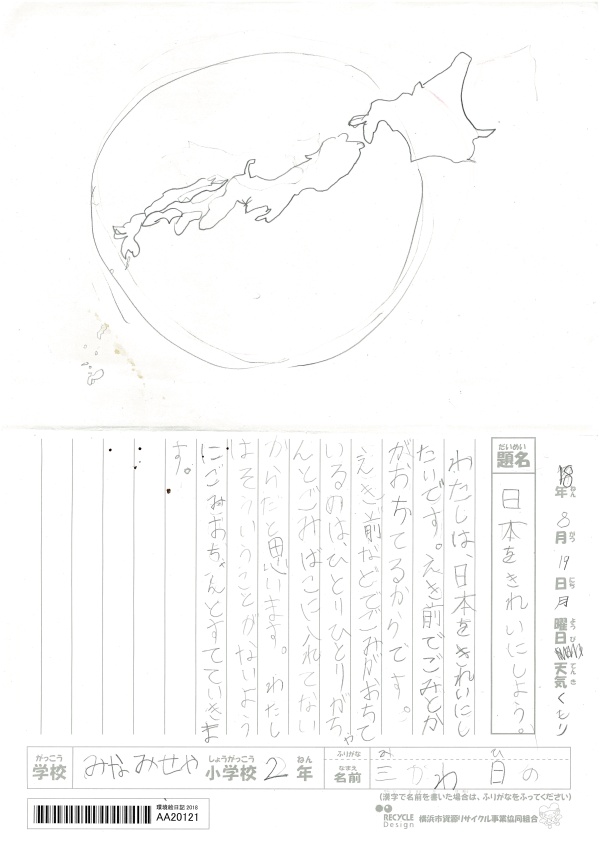 18年 8月 19日 月曜日 天気 くもり
だいめい
題名 日本をきれいにしよう。
わたしは、日本をきれいにし
たいです。えき前でごみとか
がおちてるからです。
えき前などでごみがおちて
いるのは、ひとりひとりがちゃ
んとごみばこに入れてない
からだと思います。わたし
はそういうことがないよう
にごみおちゃんとすてていきま
す。
がっこう しょうがっこう ねん
学校 みなみせや 小学校 2年
ふりがな み ひ
なまえ
名前 三かわ 日の
(漢字で名前を書いた場合は、ふりがなをふってください)
環境絵日記 2018
AA20121
RECYCLE Design 横浜市資源リサイクル事業協同組合